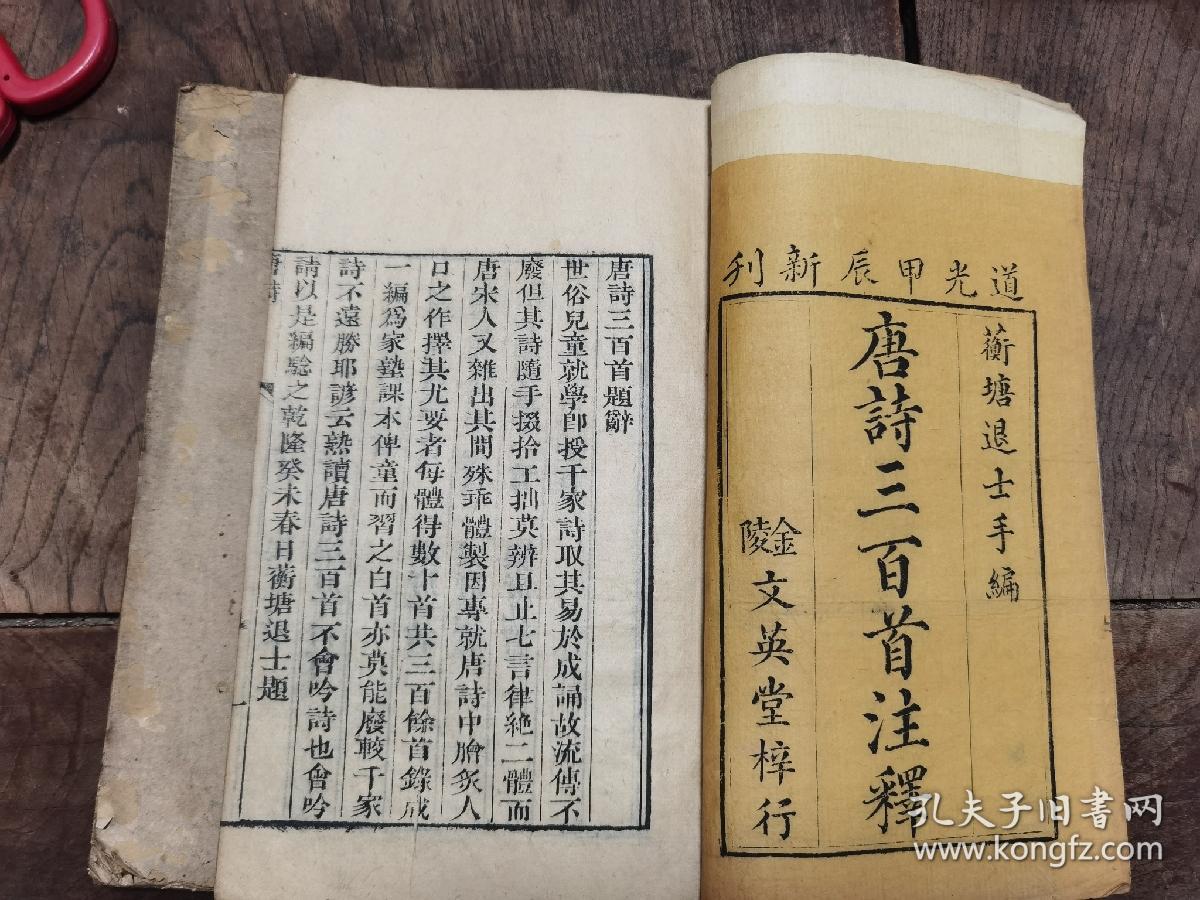 道光甲辰新刊
蘅塘退士手編
唐詩三百首注釋
金陵文英堂梓行
唐詩三百首題辭
世俗兒童就學卽授千家詩取其易於成誦故流傳不
廢但其詩隨手掇拾工拙莫辨且止七言律絕二體而
唐宋人又雜出其間殊乖體製因專就唐詩中膾炙人
口之作擇其尤要者每體得數十首共三百餘首錄成
一編爲家塾課本俾童而習之白首亦莫能廢較千家
詩不遠勝耶諺云熟讀唐詩三百首不會吟詩也會吟
請以是編驗之乾隆癸未春日蘅塘退士題
唐詩
一
孔夫子旧书网
www.kongfz.com